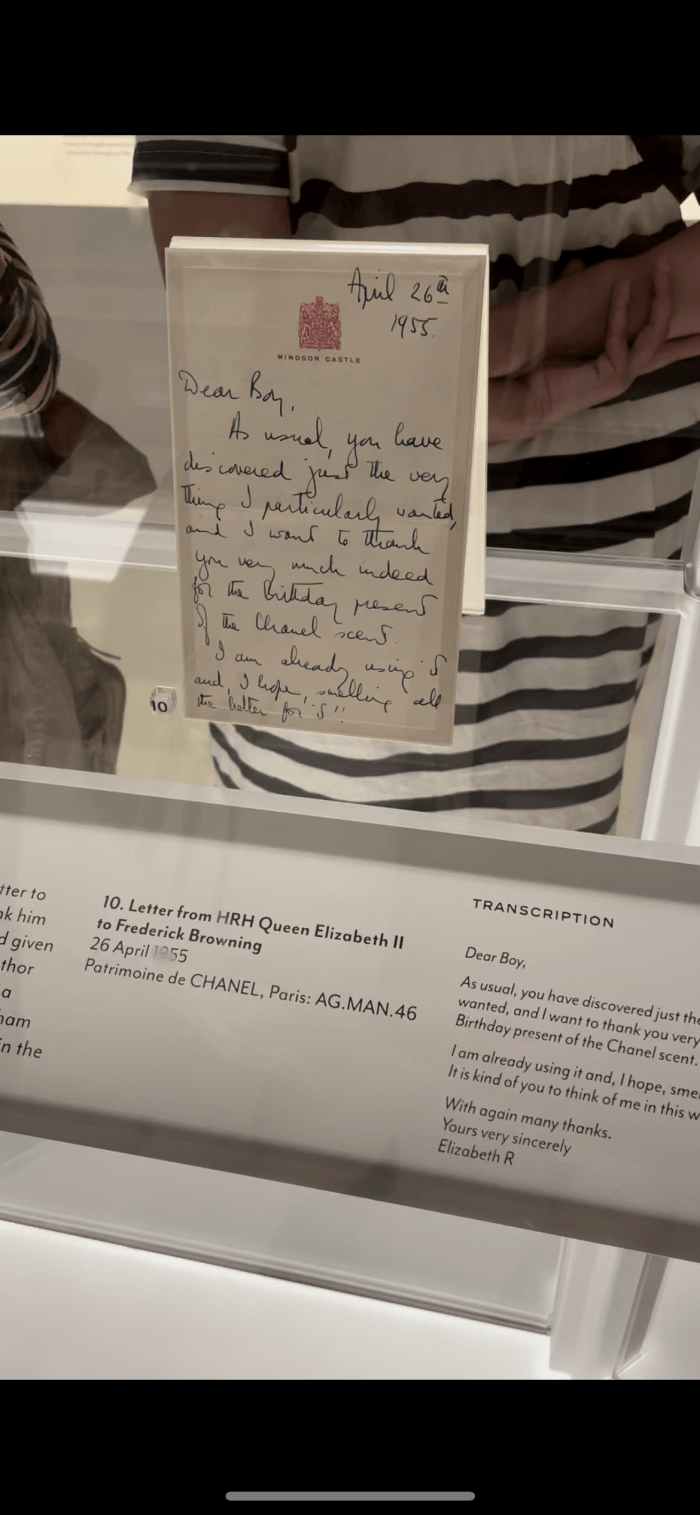 April 26th
1955.
WINDSOR CASTLE
Dear Boy,
As usual, you have
discovered just the very
thing I particularly wanted,
and I want to thank
you very much indeed
for the Birthday present
of the Chanel scent.
I am already using it
and, I hope, smelling all
the better for it!!
10
tter to
nk him
d given
thor
a
ham
in the
10. Letter from HRH Queen Elizabeth II
to Frederick Browning
26 April 1955
Patrimoine de CHANEL, Paris: AG.MAN.46
TRANSCRIPTION
Dear Boy,
As usual, you have discovered just the
wanted, and I want to thank you very
Birthday present of the Chanel scent.
I am already using it and, I hope, sme
It is kind of you to think of me in this w
With again many thanks.
Yours very sincerely
Elizabeth R